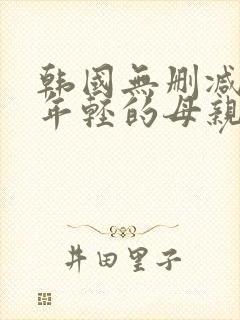 韩國無删减
年轻的母親
井田里子